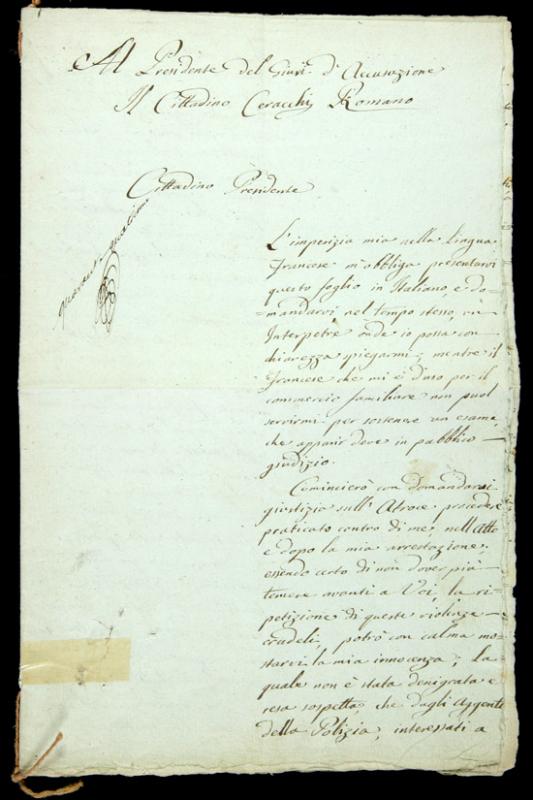 Al Presidente del Giurì d'Accusazione
Il Cittadino Ceracchi Romano
Cittadino Presidente
L'imperizia mia nella Lingua
Francese m'obbliga presentarvi
questo foglio in Italiano, e do-
=mandarvi nel tempo stesso, un
Interpetre onde io possa con
chiarezza spiegarmi; mentre il
Francese che mi è d'uso per il
commercio familiare non puol
servirmi per sostenere un esame,
che apparir deve in pubblico
giudizio.
Comincierò con domandarvi
giustizia sull'Atroce procedere
praticato contro di me, nell'atto
e dopo la mia arrestazione;
essendo certo di non dover più
temere avanti a Voi, la ri-
petizione di queste violenze
crudeli, potrò con calma mo-
starvi la mia innocenza; La
quale non è stata denigrata e
resa sospetta che dagli Aggenti
della Polizia, interessati a